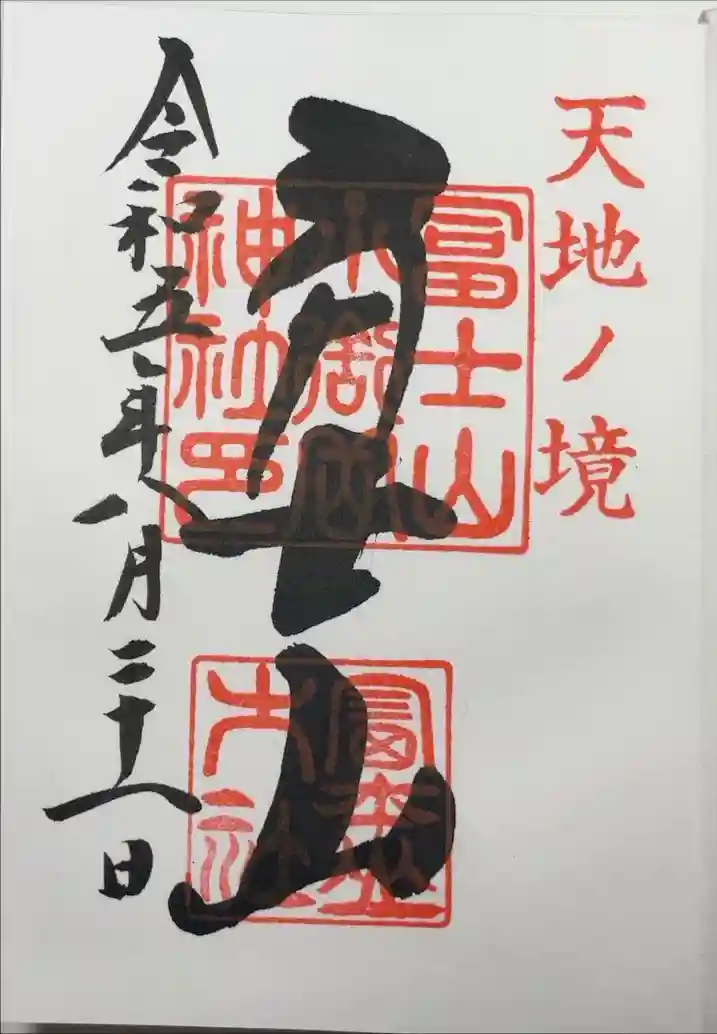 天地ノ境
冨士山
冨士山
小御
神社印
大社
令和五年八月二十八日